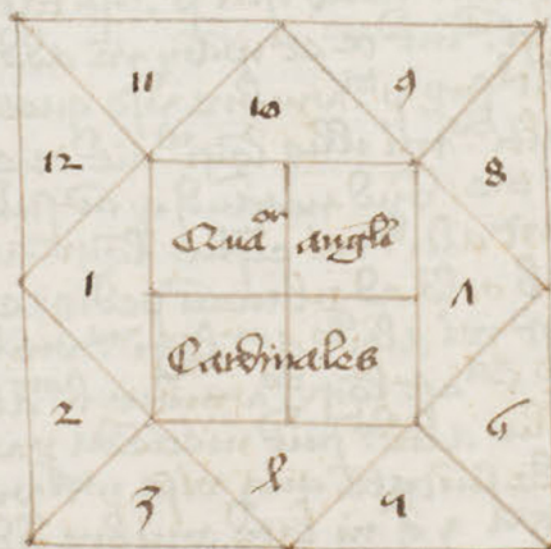 11
10
9
12
8
Quaor angli
1
7
Cardinales
2
6
3
4
5